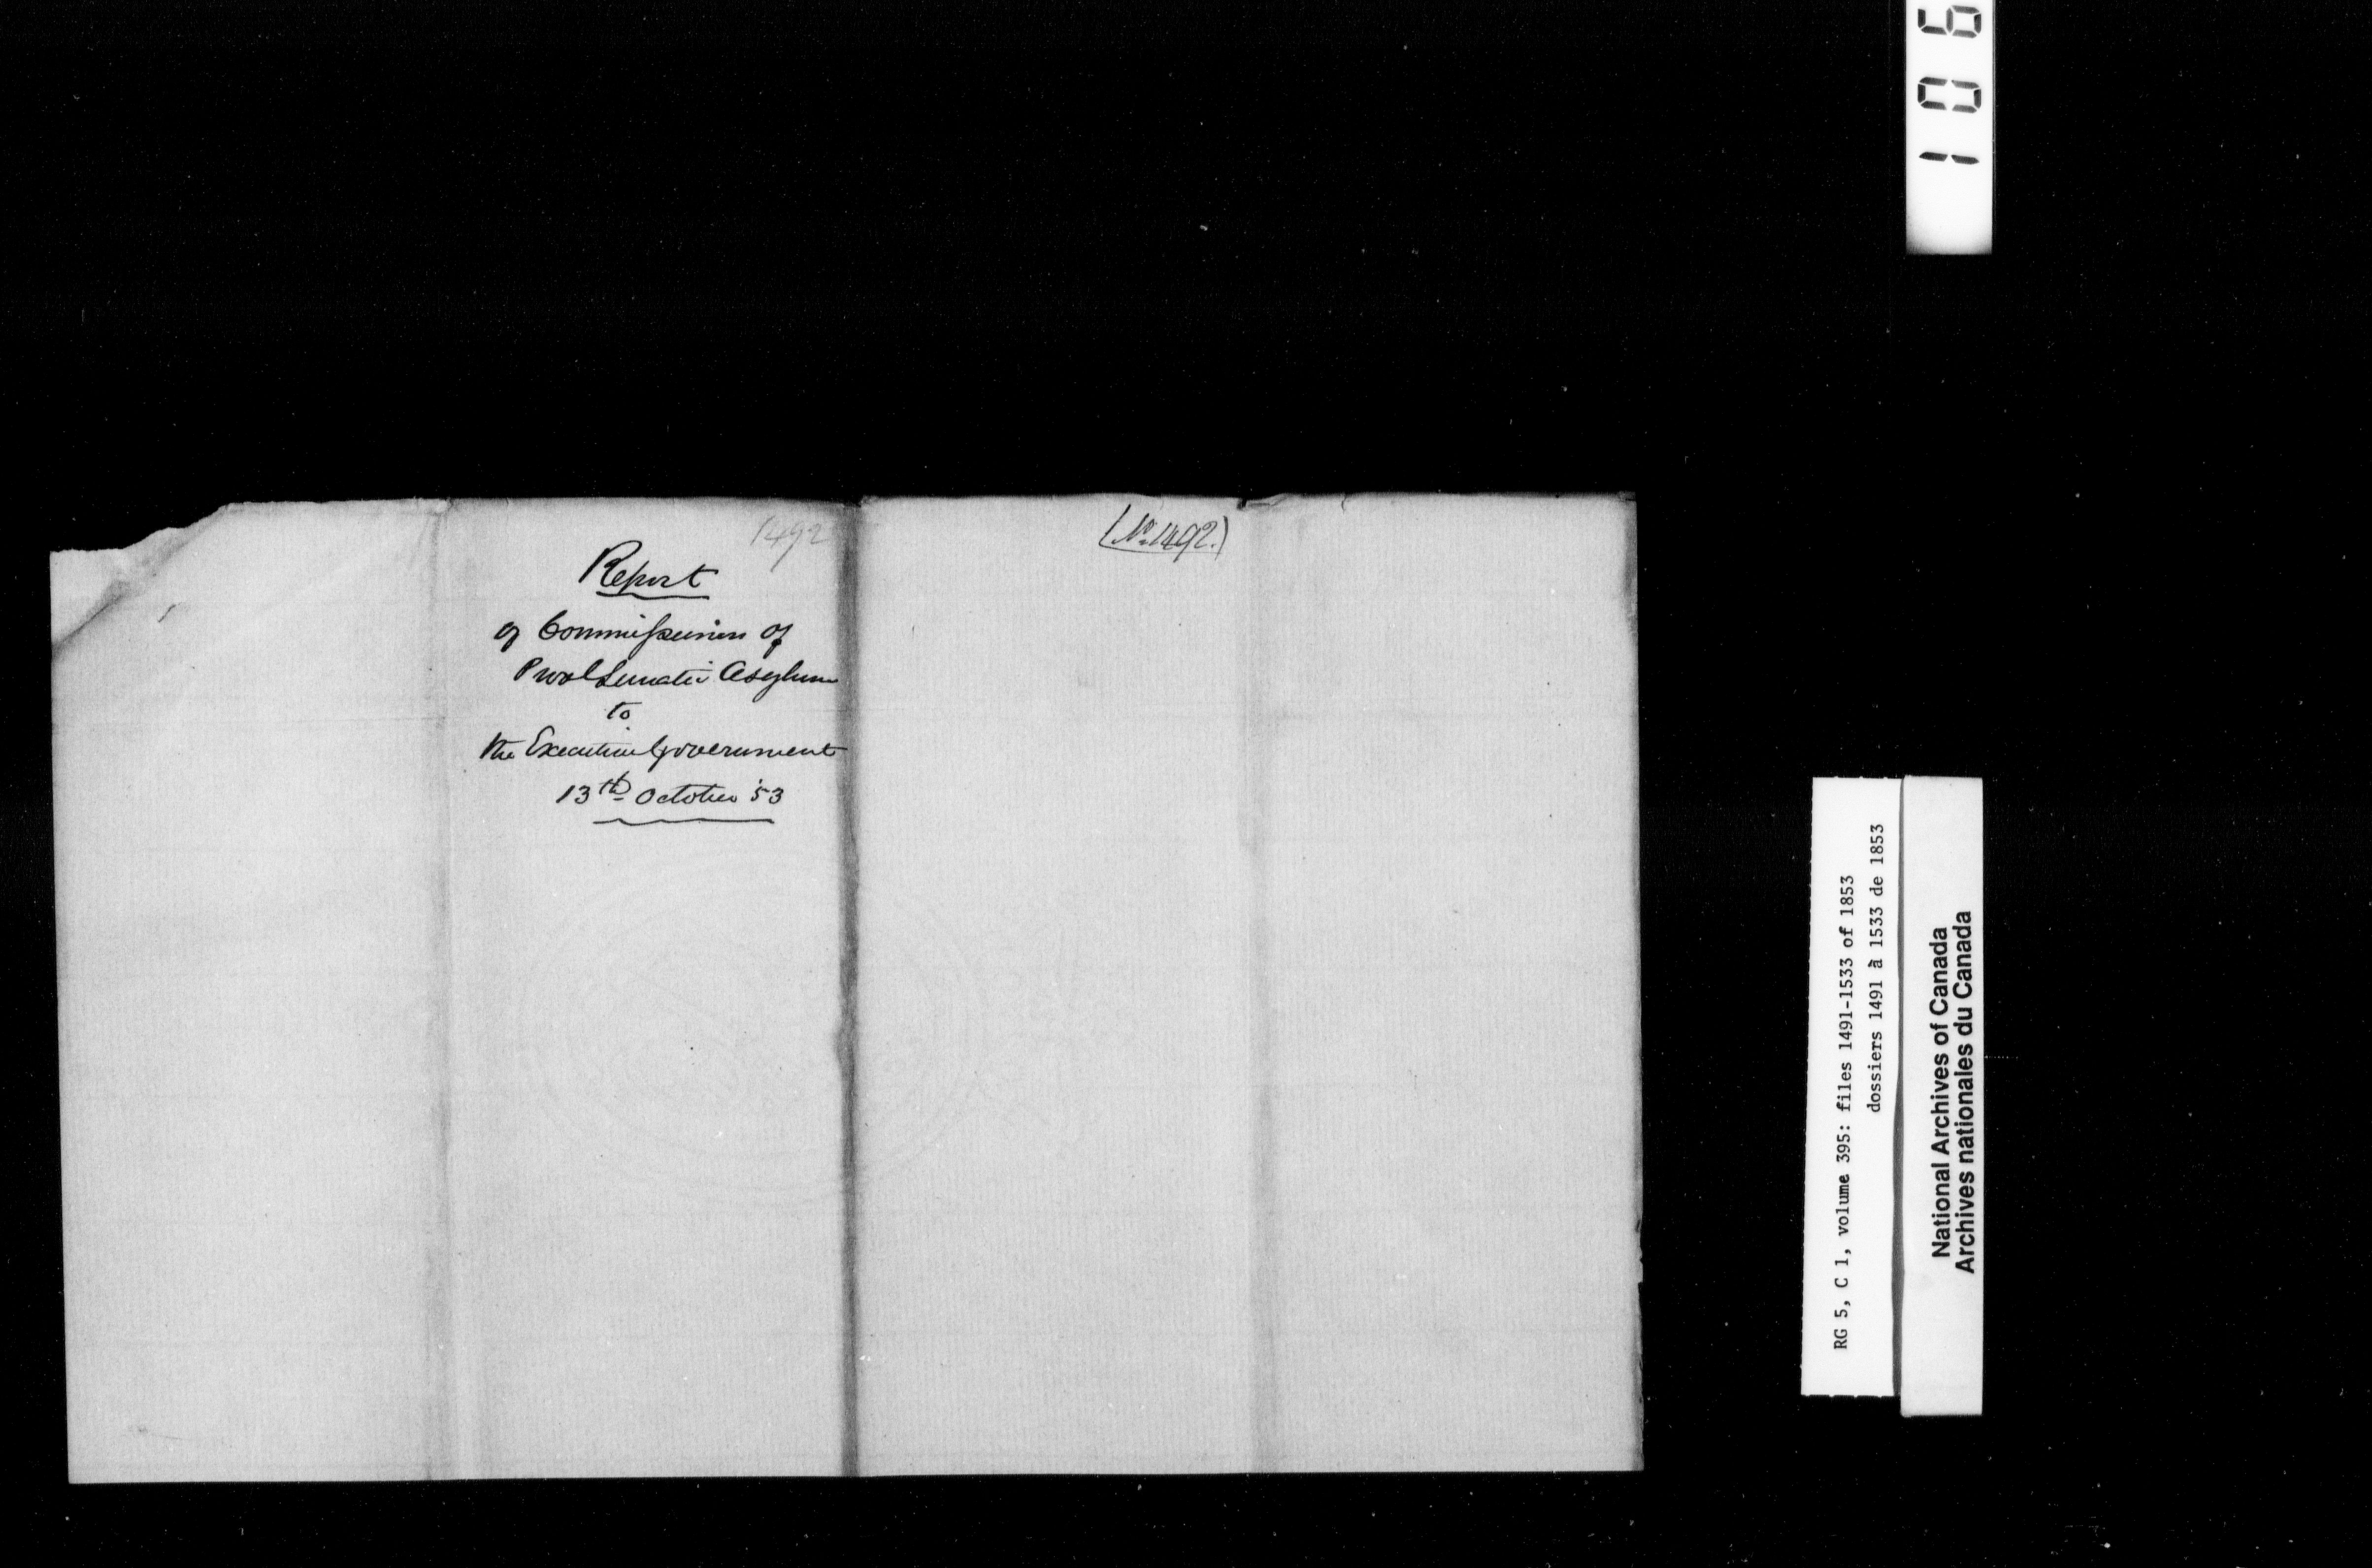 1492
Report
of Commissioners of
Provl Lunatic Asylum
to
the Executive Government
13th October '53
(No. 1492.)
106
RG 5, C 1, volume 395: files 1491-1533 of 1853
dossiers 1491 à 1533 de 1853
National Archives of Canada
Archives nationales du Canada